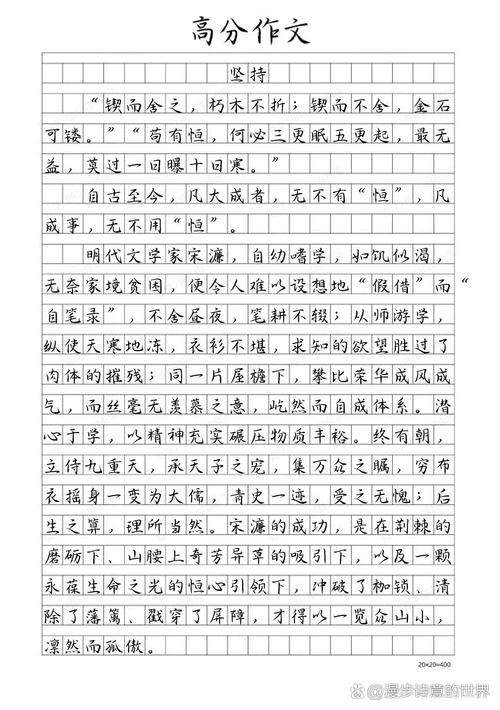 高分作文
坚持
“锲而舍之，朽木不折；锲而不舍，金石
可镂。”“苟有恒，何必三更眠五更起，最无
益，莫过一日曝十日寒。”
自古至今，凡大成者，无不有“恒”，凡
成事，无不用“恒”。
明代文学家宋濂，自幼嗜学，如饥似渴，
无奈家境贫困，便令人难以设想地“假借”而“
自笔录”，不舍昼夜，笔耕不辍；从师游学，
纵使天寒地冻，衣衫不堪，求知的欲望胜过了
肉体的摧残；同一片屋檐下，攀比荣华成风成
气，而丝毫无羡慕之意，屹然而自成体系。潜
心于学，以精神充实碾压物质丰裕。终有朝，
立侍九重天，承天子之宠，集万众之瞩，穷布
衣摇身一变为大儒，青史一迹，受之无愧；后
生之算，理所当然。宋濂的成功，是在荆棘的
磨砺下、山腰上奇芳异草的吸引下，以及一颗
永葆生命之光的恒心引领下，冲破了枷锁、清
除了藩篱、戳穿了屏障，才得以一览众山小，
凛然而孤傲。
20×20=400
@漫步诗意的世界